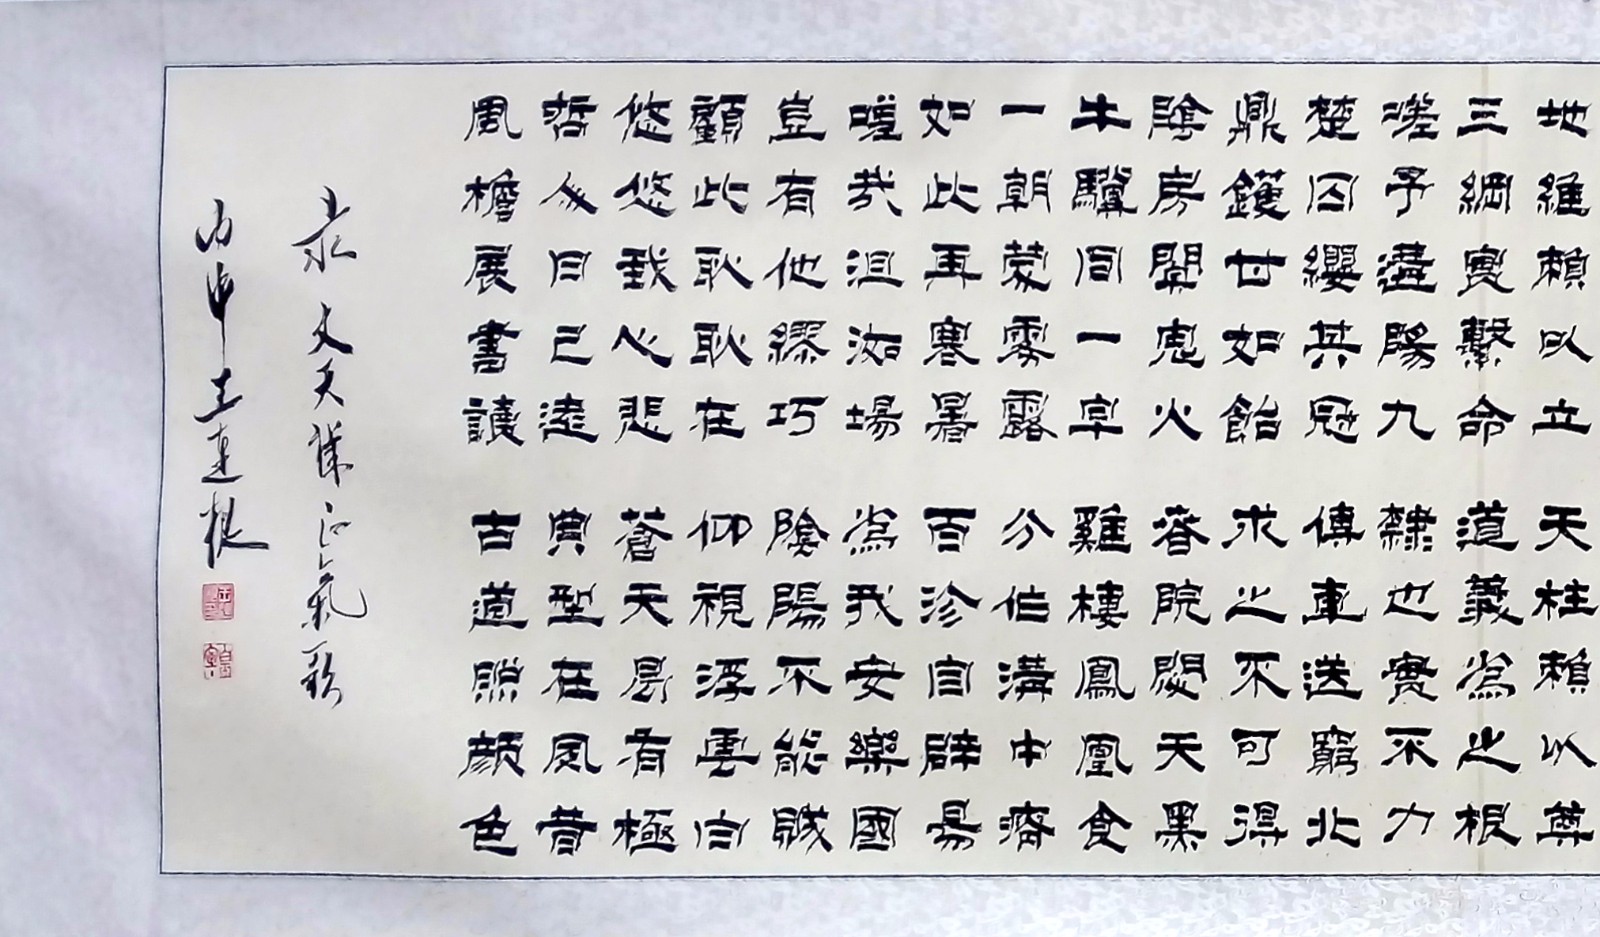 地維賴以立 天柱賴以尊
三綱實繫命 道義為之根
嗟予遘陽九 隸也實不力
楚囚纓其冠 傳車送窮北
鼎鑊甘如飴 求之不可得
陰房闃鬼火 春院閟天黑
牛驥同一皁 雞棲鳳凰食
一朝蒙霧露 分作溝中瘠
如此再寒暑 百沴自辟易
嗟哉沮洳場 為我安樂國
豈有他繆巧 陰陽不能賊
顧此耿耿在 仰視浮雲白
悠悠我心悲 蒼天曷有極
哲人日已遠 典型在夙昔
風檐展書讀 古道照顏色
录文天祥正氣歌
丙申王連根